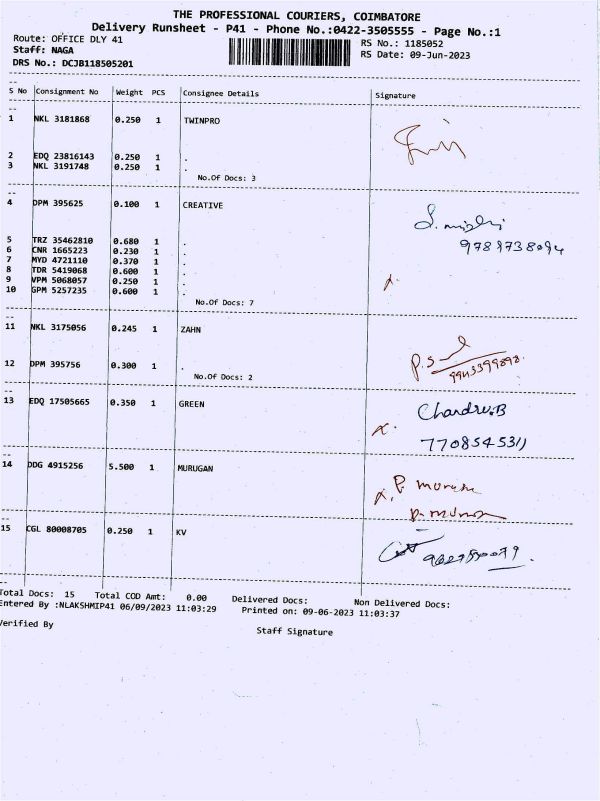 THE PROFESSIONAL COURIERS, COIMBATORE
Delivery Runsheet - P41 - Phone No.:0422-3505555 - Page No.:1
Route: OFFICE DLY 41 RS No.: 1185052
Staff: NAGA RS Date: 09-Jun-2023
DRS No.: DCJB118505201
S No Consignment No Weight PCS Consignee Details Signature
1 NKL 3181868 0.250 1 TWINPRO
2 EDQ 23816143 0.250 1 .
3 NKL 3191748 0.250 1 .
No.Of Docs: 3
4 DPM 395625 0.100 1 CREATIVE
5 TRZ 35462810 0.680 1 .
6 CNR 1665223 0.230 1 .
7 MYD 4721110 0.370 1 .
8 TDR 5419068 0.600 1 .
9 VPM 5068057 0.250 1 .
10 GPM 5257235 0.600 1 .
No.Of Docs: 7
11 NKL 3175056 0.245 1 ZAHN
P.S
12 DPM 395756 0.300 1 .
No.Of Docs: 2
13 EDQ 17505665 0.350 1 GREEN
7708545311
14 DDG 4915256 5.500 1 MURUGAN
15 CGL 80008705 0.250 1 KV
Total Docs: 15 Total COD Amt: 0.00 Delivered Docs: Non Delivered Docs:
Entered By :NLAKSHMIP41 06/09/2023 11:03:29 Printed on: 09-06-2023 11:03:37
Verified By Staff Signature